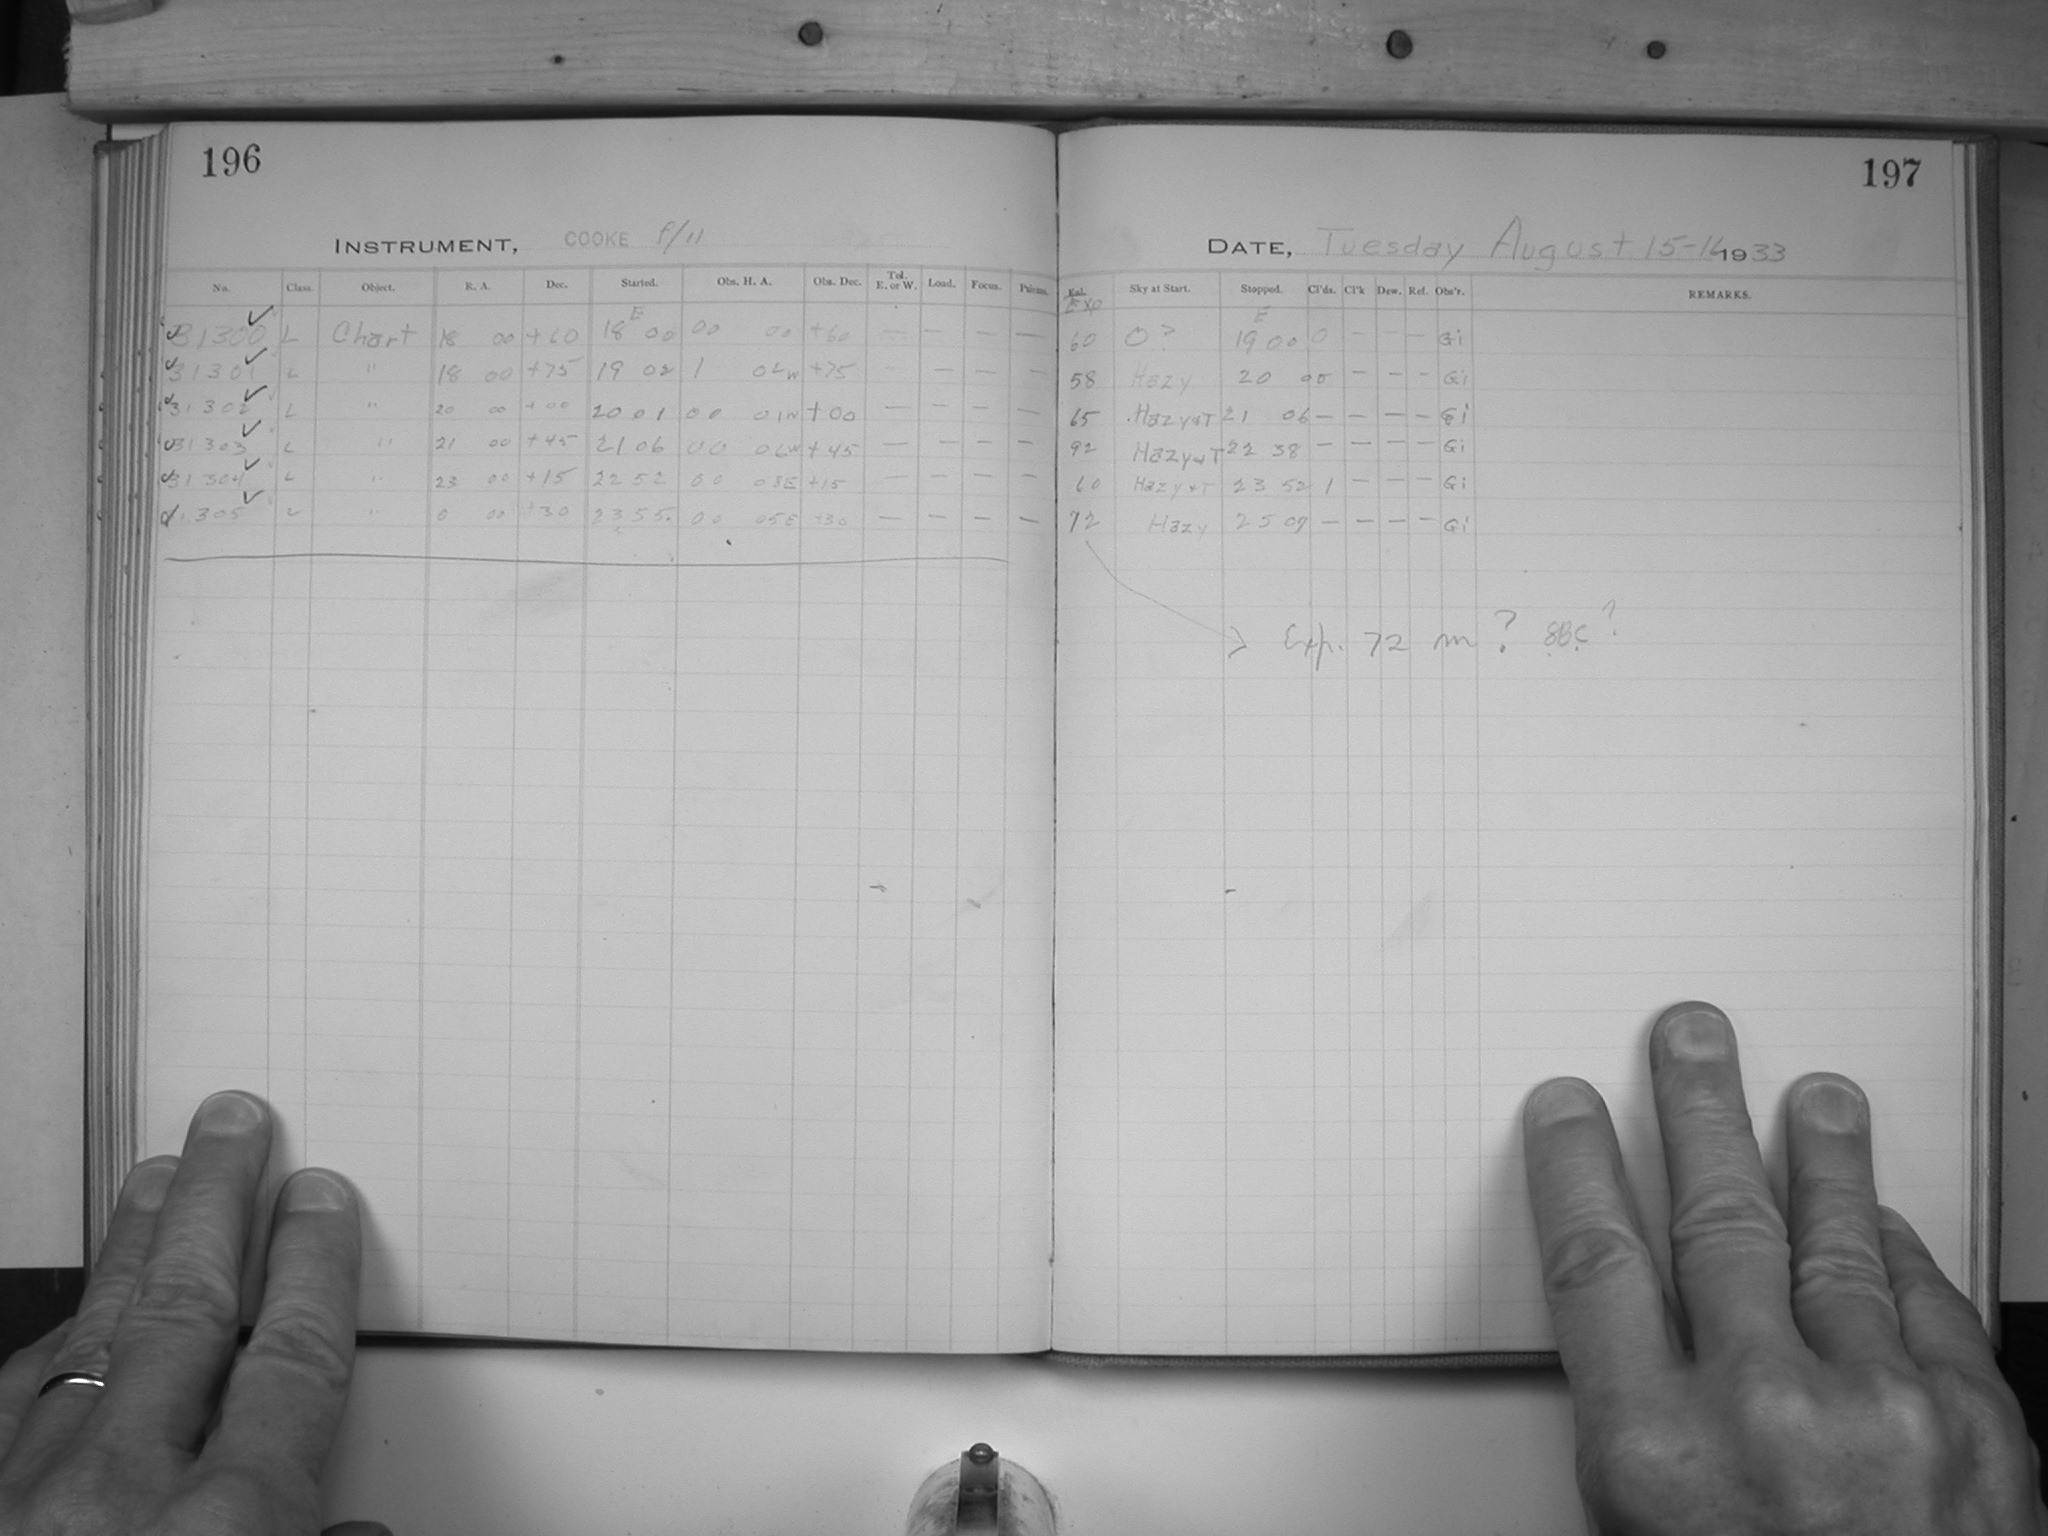 196
INSTRUMENT, COOKE f/11
No. Class. Object. R. A. Dec. Started. Obs. H. A. Obs. Dec. Tel. E. or W. Load. Focus.
E
31300 L Chart 18 00 +60 18 00 00 00 +60 — — — —
31301 L " 18 00 +75 19 02 1 02W +75 — — — —
31302 L " 20 00 +00 20 01 00 01W +00 — — — —
31303 L " 21 00 +45 21 06 00 06W +45 — — — —
31304 L " 23 00 +15 22 52 00 08E +15 — — — —
31305 L " 0 00 +30 23 55 00 05E +30 — — — —
197
DATE, Tuesday August 15-16 1933
Sky at Start. Stopped. Cl'ds. Cl'k Dew. Ref. Obs'r. REMARKS.
Exp
E
60 0? 19 00 0 — — — Gi
58 Hazy 20 00 — — — Gi
65 Hazy+T 21 06 — — — — Gi
92 Hazy+T 22 38 — — — — Gi
60 Hazy+T 23 52 1 — — — Gi
72 Hazy 25 07 — — — — Gi
Exp. 72 m ? ?